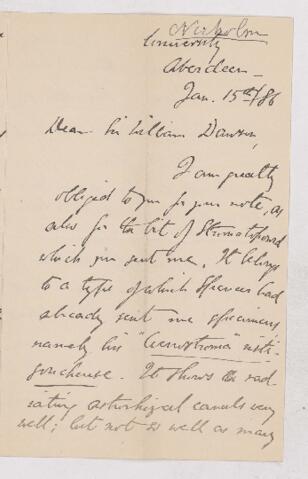 Nicholson
University
Aberdeen
Jan. 15th/86
Dear Sir William Dawson,
I am greatly
obliged to you for your note, as
also for the bit of Stromatoporoid
which you sent me. It belongs
to a type of which Spencer had
already sent me specimens,
namely his "Caunostroma"
. It shows the rad-
iating astrorhizal canals very
well; but not so well as many